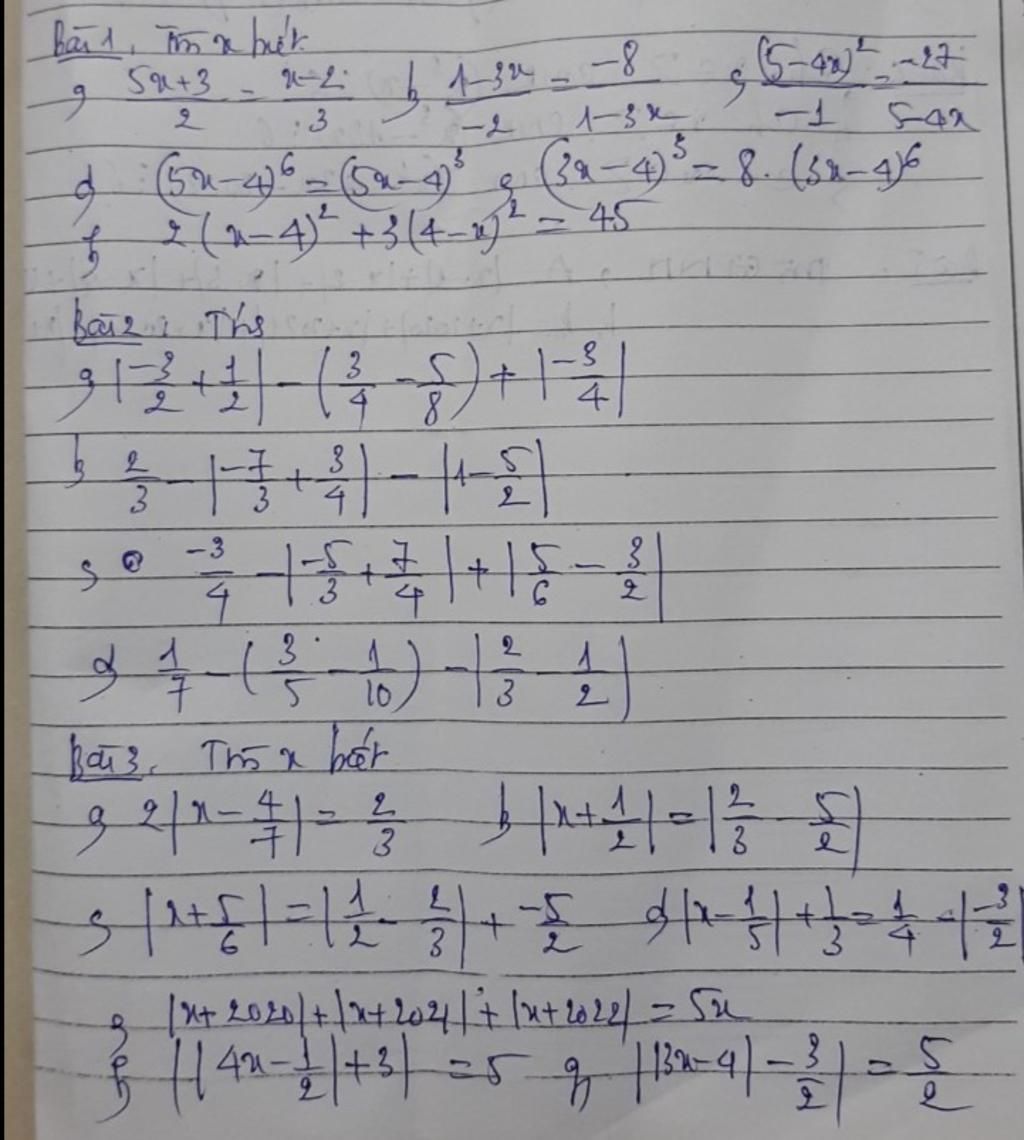 Bài 1. Tìm x biết.
a, (5x+3)/2 = (x-2)/3 b, (1-3x)/-2 = -8/(1-3x) c, (5-4x)²/-1 = -27/(5-4x)
d, (5x-4)⁶ = (5x-4)³ e, (3x-4)³ = 8.(3x-4)⁶
f, 2(x-4)² + 3(4-x)² = 45
Bài 2: Tính
a, |-3/2 + 1/2| - (3/4 - 5/8) + |-3/4|
b, 2/3 - |-7/3 + 3/4| - |1 - 5/2|
c, -3/4 - |-5/3 + 7/4| + |5/6 - 3/2|
d, 1/7 - (3/5 - 1/10) - |2/3 - 1/2|
Bài 3. Tìm x biết
a, 2|x - 4/7| = 2/3 b, |x + 1/2| = |2/3 - 5/2|
c, |x + 5/6| = |1/2 - 2/3| + -5/2 d, |x - 1/5| + 1/3 = 1/4 - |-3/2|
e, |x+2020| + |x+2021| + |x+2022| = 5x
f, ||4x - 1/2| + 3| = 5 g, ||3x-4| - 3/2| = 5/2